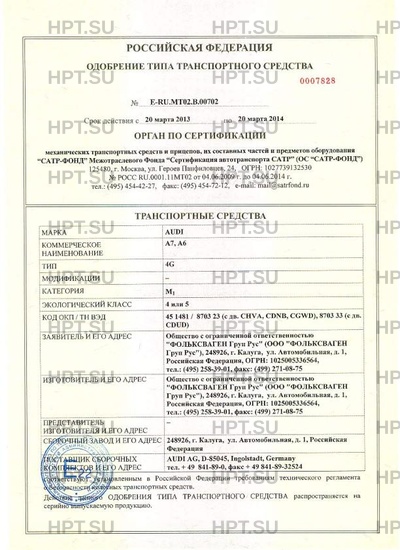 РОССИЙСКАЯ ФЕДЕРАЦИЯ
ОДОБРЕНИЕ ТИПА ТРАНСПОРТНОГО СРЕДСТВА
0007828
№ E-RU.MT02.B.00702
Срок действия с 20 марта 2013 по 20 марта 2014
ОРГАН ПО СЕРТИФИКАЦИИ
механических транспортных средств и прицепов, их составных частей и предметов оборудования
"САТР-ФОНД" Межотраслевого Фонда "Сертификация автотранспорта САТР" (ОС "САТР-ФОНД")
125480, г. Москва, ул. Героев Панфиловцев, 24, ОГРН: 1027739132530
№ РОСС RU.0001.11МТ02 от 04.06.2009 г. до 04.06.2014 г.
тел.: (495) 454-42-27, факс: (495) 454-72-12, e-mail: mail@satrfond.ru
ТРАНСПОРТНЫЕ СРЕДСТВА
МАРКА AUDI
КОММЕРЧЕСКОЕ A7, A6
НАИМЕНОВАНИЕ
ТИП 4G
МОДИФИКАЦИИ –
КАТЕГОРИЯ M1
ЭКОЛОГИЧЕСКИЙ КЛАСС 4 или 5
КОД ОКП / ТН ВЭД 45 1481 / 8703 23 (с дв. CHVA, CDNB, CGWD), 8703 33 (с дв.
CDUD)
ЗАЯВИТЕЛЬ И ЕГО АДРЕС Общество с ограниченной ответственностью
"ФОЛЬКСВАГЕН Груп Рус" (ООО "ФОЛЬКСВАГЕН
Груп Рус"), 248926, г. Калуга, ул. Автомобильная, д. 1,
Российская Федерация, ОГРН: 1025005336564,
тел.: (495) 258-39-01, факс: (499) 271-08-75
ИЗГОТОВИТЕЛЬ И ЕГО АДРЕС Общество с ограниченной ответственностью
"ФОЛЬКСВАГЕН Груп Рус" (ООО "ФОЛЬКСВАГЕН
Груп Рус"), 248926, г. Калуга, ул. Автомобильная, д. 1,
Российская Федерация, ОГРН: 1025005336564,
тел.: (495) 258-39-01, факс: (499) 271-08-75
ПРЕДСТАВИТЕЛЬ –
ИЗГОТОВИТЕЛЯ И ЕГО АДРЕС
СБОРОЧНЫЙ ЗАВОД И ЕГО АДРЕС 248926, г. Калуга, ул. Автомобильная, д. 1, Российская
Федерация
ПОСТАВЩИК СБОРОЧНЫХ AUDI AG, D-85045, Ingolstadt, Germany
КОМПЛЕКТОВ И ЕГО АДРЕС тел. + 49 841-89-0, факс + 49 841-89-32524
соответствуют установленным в Российской Федерации требованиям технического регламента
о безопасности колесных транспортных средств.
Действие данного ОДОБРЕНИЯ ТИПА ТРАНСПОРТНОГО СРЕДСТВА распространяется на
серийно выпускаемую продукцию.
HPT.SU